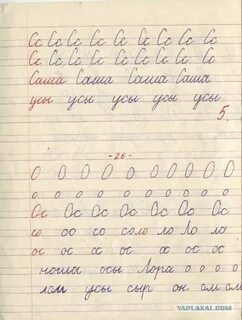 Сс Сс Сс Сс Сс Сс Сс Сс
Сс Сс Сс Сс Сс Сс Сс Сс
Саша Саша Саша Саша
усы усы усы усы усы
5.
-26-
О О О О О О О О О
о о о о о о о о о
Ос Ос Ос Ос Ос Ос
со со со соло ло Ло ло
ос ос ос ос ос ос
осы Лора о о о о
усы сыр он
YAPLAKAL.COM